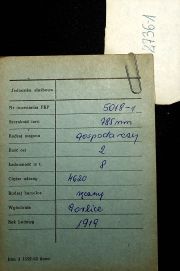 2736-V
Jednostka służbowa
Nr inwentarza PKP 5018-1
Szerokość toru 785 mm
Rodzaj wagonu gospodarczy
Ilość osi 2
Ładowność w t. 8
Ciężar własny 4620
Rodzaj hamulca ręczny
Wytwórnia Gorlice
Rok budowy 1919